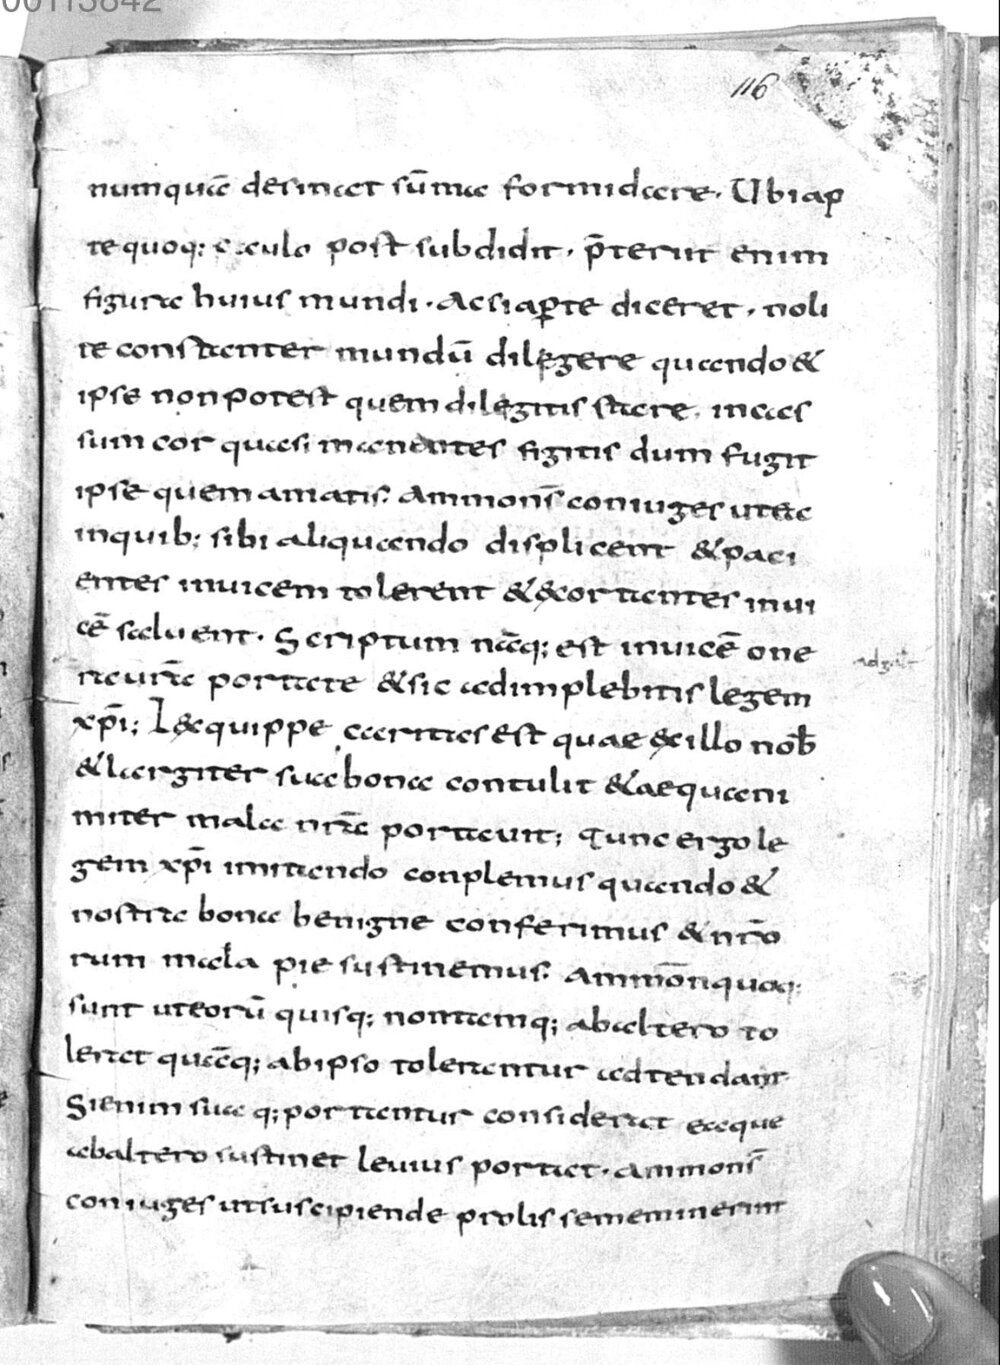 00113842
116
numquā desinat sūma formidare. Ubi ap
te quoq; oculo post subdidit. p̄terit enim
figura huius mundi. Ac si aꝑte diceret. noli
te constanter mundū dilegere quando &
ipse non potest quem dilegitis stare. incas
sum cor quasi manentes figitis dum fugit
ipse quem amatis. Ammonn̄ coniuges ut ea
in quib; sibi aliquando displicent & paci
entes invicem tolerent & exortantes invi
cē salvent. Scriptum nāq; est invicē one
ra vr̄a portate & sic adimplebitis legem
xp̄i; Lex quippe caritas est quae ex illo nob̄
& largiter sua bona contulit & aequani
miter mala nr̄a portavit; Tunc ergo le
gem xp̄i imitando conplemus quando &
nostra bona benigne conferimus & nr̄o
rum mala pie sustinemus. Ammōn quoq;
sunt ut eorū quisq; non tam q; ab altero to
lerat quāq; ab ipso tolerantur adtendant
Si enim sua q; portantur considerat ea que
ab altero sustinet levius portat. Ammonn̄
coniuges ut suscipiende prolis se meminerint